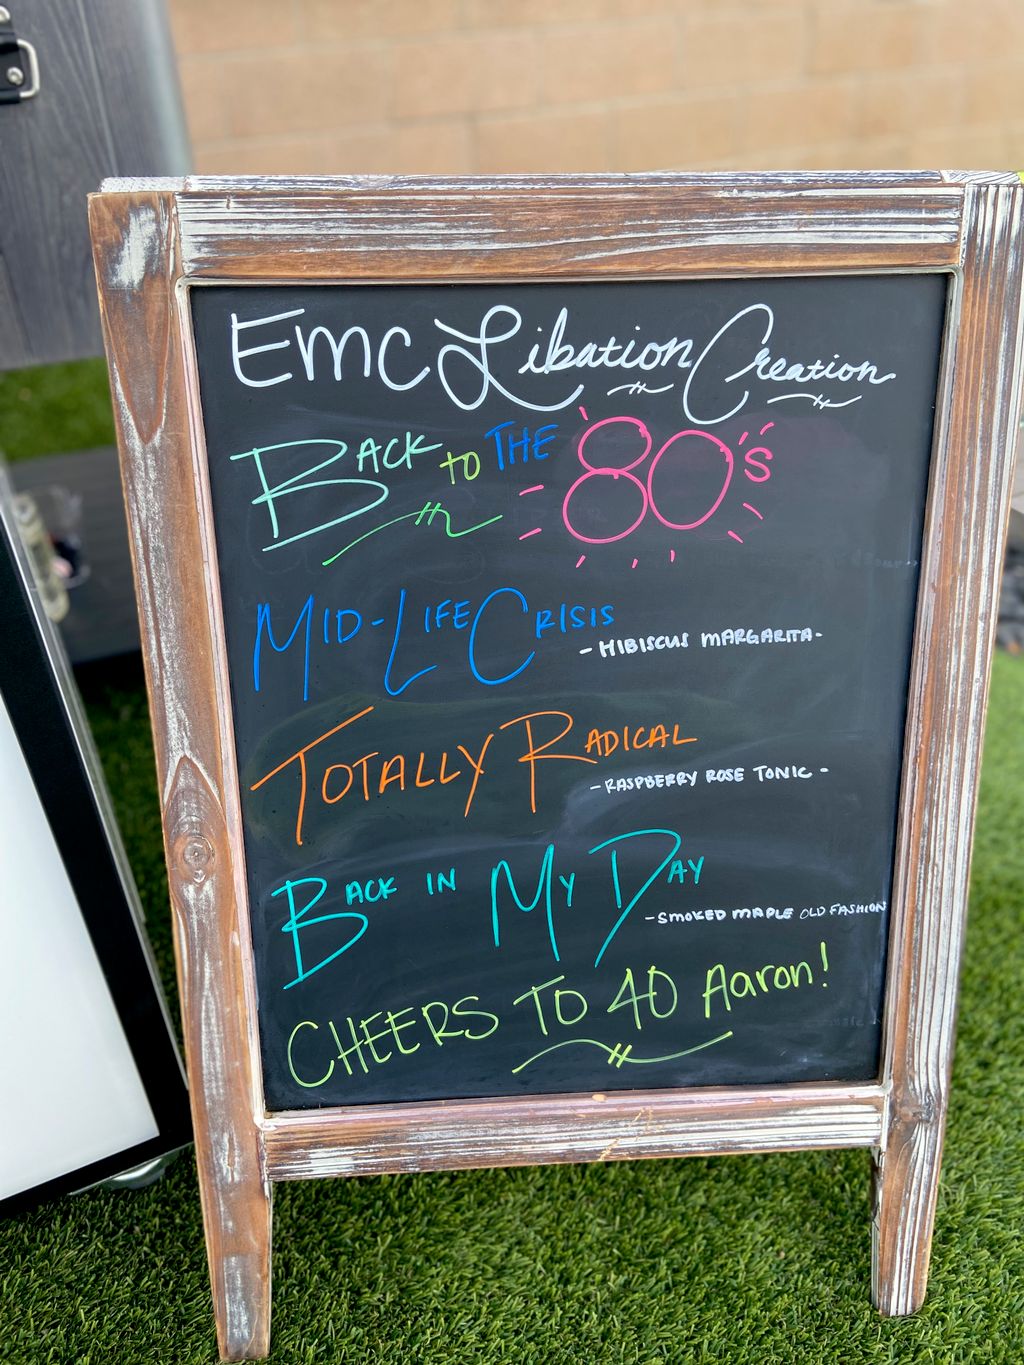 Emc Libation Creation
BACK TO THE '80's
MID-LIFE CRISIS
- HIBISCUS MARGARITA -
TOTALLY RADICAL
- RASPBERRY ROSE TONIC -
BACK IN MY DAY
- SMOKED MAPLE OLD FASHION
CHEERS TO 40 Aaron!